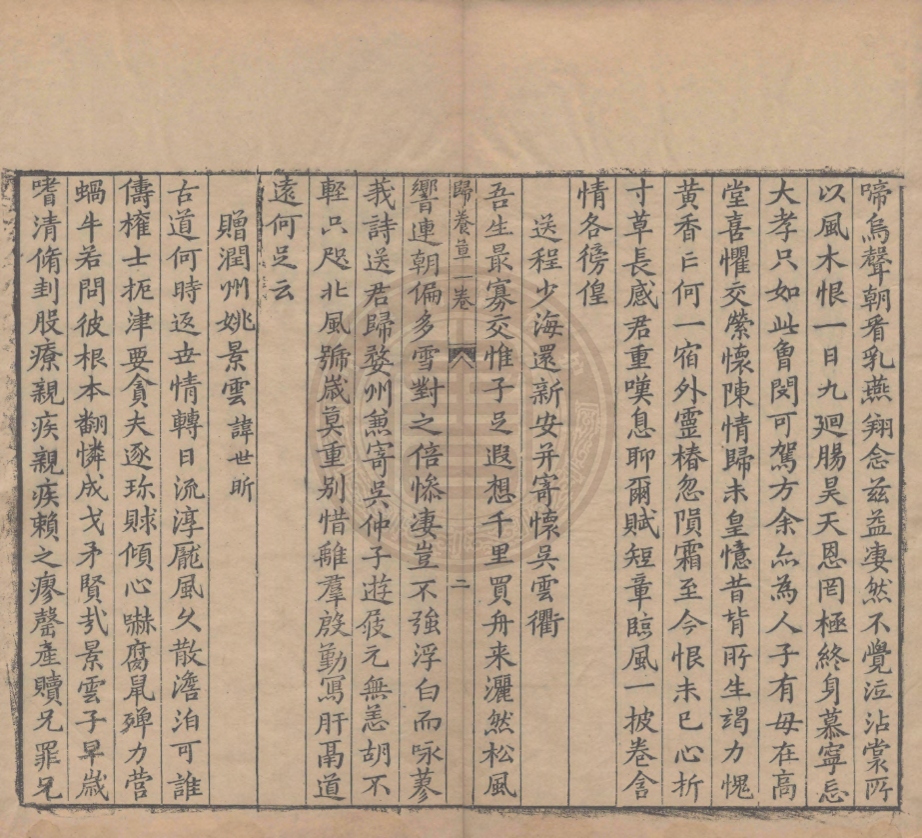 啼烏聲朝看乳燕翔念茲益凄然不覺泣沾裳所
以風木恨一日九迴腸昊天恩罔極終身慕寧忘
大孝只如此魯閔可駕方余亦為人子有母在高
堂喜懼交縈懷陳情歸未皇憶昔背所生竭力愧
黃香亡何一宿外靈椿忽隕霜至今恨未已心折
寸草長感君重嘆息聊爾賦短章臨風一披卷含
情各徬徨
送程少海還新安并寄懷吳雲衢
吾生最寡交惟子足遐想千里買舟来灑然松風
歸養草一卷 二
響連朝偏多雪對之倍慘凄豈不強浮白而咏蓼
莪詩送君歸婺州兼寄吳仲子遊屐元無恙胡不
輕只咫北風號歲莫重別惜離羣慇勤寫肝膈道
遠何足云
贈潤州姚景雲 諱世昕
古道何時返世情轉日流淳龐風久散澹泊可誰
儔榷士扼津要貪夫逐珎賕傾心嚇腐鼠殫力營
蝸牛若問彼根本翻憐成戈矛賢㢤景雲子早歲
嗜清脩刲股療親疾親疾賴之瘳罄產贖兄罪兄